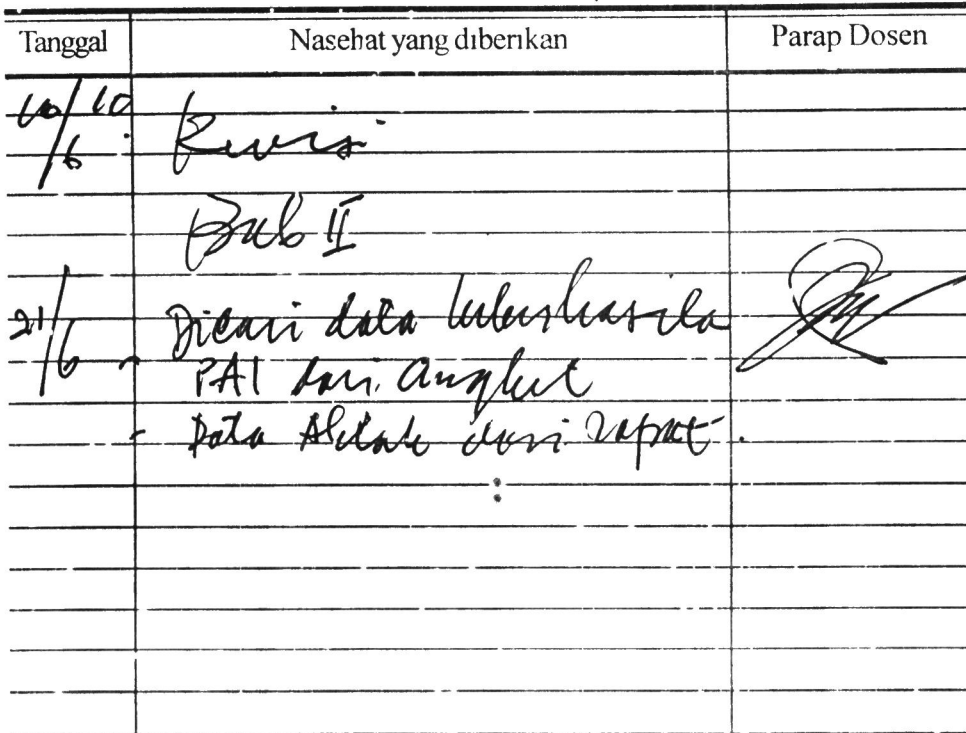 Tanggal Nasehat yang diberikan Parap Dosen
Revisi
Bab II
21/6 - Dicari data keberhasila
PAI dari Angket
- Data Akhlak dari rapat.